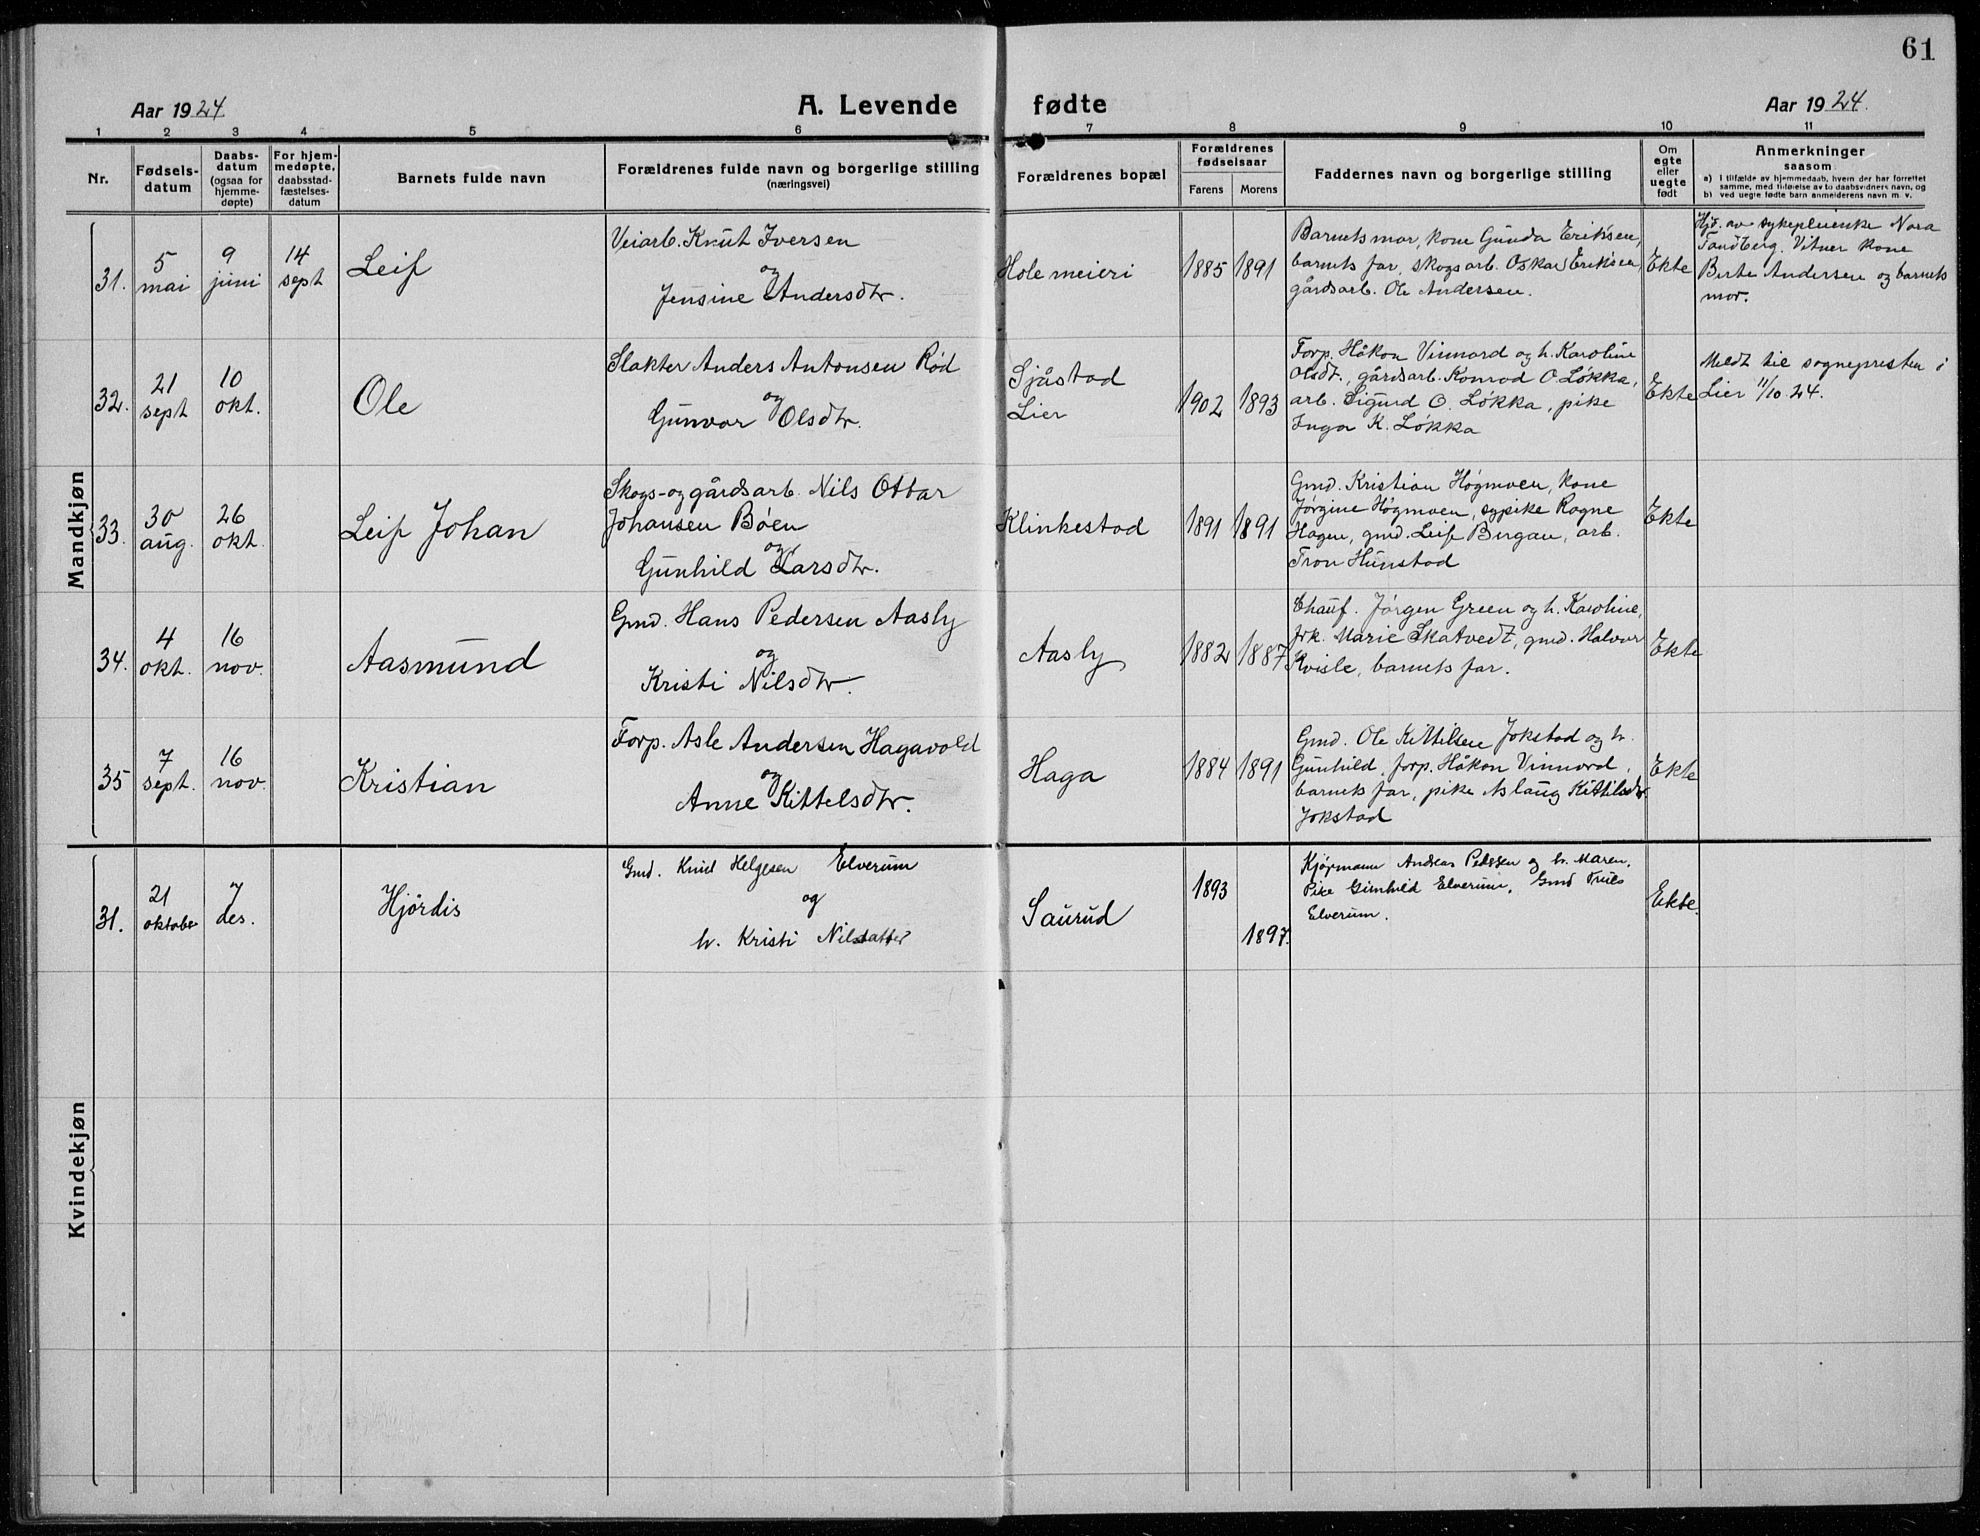 61
Aar 1924
A. Levende fødte
Aar 1924.
1 2 3 4 5 6 7 8 9 10 11
Nr.
Fødsels-
datum
Daabs-
datum
(ogsaa for
hjemme-
døpte)
For hjem-
medøpte,
daabsstad-
fæstelses-
datum
Barnets fulde navn
Forældrenes fulde navn og borgerlige stilling
(næringsvei)
Forældrenes bopæl
Forældrenes
fødselsaar
Farens
Morens
Faddernes navn og borgerlige stilling
Om
egte
eller
uegte
født
Anmerkninger
saasom
a) I tilfælde av hjemmedaab, hvem der har forrettet
samme, med tilføielse av to daabsvidners navn, og
b) ved uegte fødte barn anmelderens navn m. v.
Mandkjøn
31.
5
mai
9
juni
14
sept
Leif
Veiarb. Knut Iversen
og
Jensine Andersdtr.
Hole meieri
1885
1891
Barnets mor, kone Gunda Eriksen,
barnets far, skogsarb. Oskar Eriksen,
gårdsarb. Ole Andersen.
Ekte
Hjd. av sykepleierske Nora
Tandberg. Vitner kone
Berte Andersen og barnets
mor.
32.
21
sept
10
okt.
Ole
Slakter Anders Antonsen Rød
og
Gunvor Olsdtr.
Sjåstad
Lier
1902
1893
Forp. Håkon Vinnord og h. Karoline
Olsdt., gårdsarb. Konrad O. Løkka,
arb. Sigurd O. Løkka, pike
Inga K. Løkka
Ekte
Meldt til sognepresten i
Lier 11/10 24.
33.
30
aug.
26
okt.
Leif Johan
Skogs- og gårdsarb. Nils Ottar
Johansen Bøen
og
Gunhild Larsdtr.
Klinkestad
1891
1891
Gmd. Kristian Høgmoen, kone
Jørgine Høgmoen, sypike Ragne
Hagen, gmd. Leif Burgau, arb.
Tron Hunstad
Ekte
34.
4
okt.
16
nov.
Aasmund
Gmd. Hans Pedersen Aasly
og
Kristi Nilsdtr.
Aasly
1882
1887
Chauf. Jørgen Green og h. Karoline,
frk. Marie Skatvedt, gmd. Halvor
Kvisle, barnets far.
Ekte
35
7
sept.
16
nov.
Kristian
Forp. Asle Andersen Hagavold
og
Anne Kittelsdtr.
Haga
1884
1891
Gmd. Ole Kittilsen Jokstad og h.
Gunhild, forp. Håkon Vinnord,
barnets far, pike Aslaug Kittilsdtr.
Jokstad
Ekte
Kvindekjøn
31.
21
oktober
7
des.
Hjørdis
Gmd. Knut Helgesen Elverum
og
h. Kristi Nilsdatter
Saurud
1893
1897.
Kjørmann Andreas Pedersen og h. Maren,
Pike Gunhild Elverum, Gmd Truls
Elverum.
Ekte.